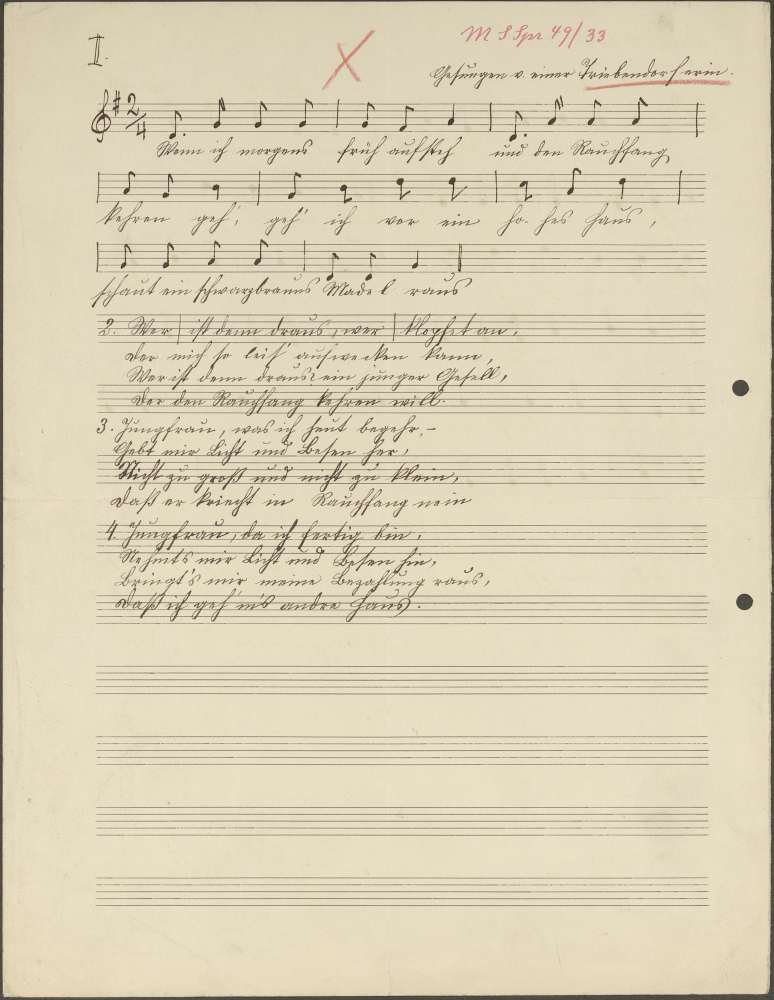 II.
M S Spr 49/33
Gesungen v. einer Triebendorferin.
2/4
Wenn ich morgens früh aufsteh und den Rauchfang
kehren geh', geh' ich vor ein ho- hes Haus,
schaut ein schwarzbrauns Madel raus
2. Wer | ist denn draus, wer | klopfet an,
Der mich so leis' aufwecken kann,
Wer ist denn draus? ein junger Gesell,
Der den Rauchfang kehren will.
3. Jungfrau, was ich heut begehr, –
Gebt mir Licht und Besen her,
Nicht zu groß und nicht zu klein,
Daß er kriecht in Rauchfang nein
4. Jungfrau, da ich fertig bin,
Nehmts mir Licht und Besen hin,
Bringt's mir meine Bezahlung raus,
Daß ich geh' ins andre Haus.